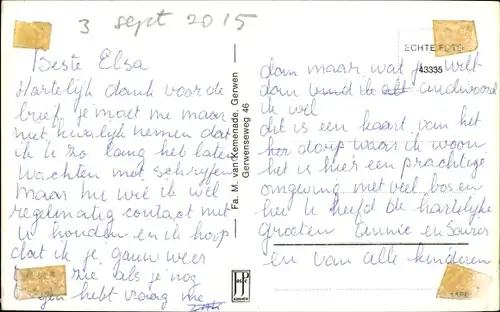 3 sept 2015
Beste Elsa
Hartelijk dank voor de
brief je moet me maar
niet kwalijk nemen dat
ik u zo lang heb laten
wachten met schrijfen
maar nu wil ik wel
regelmatig contact met
u houden en ik hoop
dat ik je gauw weer
zie als je nog
hebt vraag me
Fa. M. van Kemenade, Gerwen
Gerwenseweg 46
ECHTE FOTO
43335
dan maar wat je wilt
dan vind ik dit andwoord
ik wel
dit is een kaart van het
dorp waar ik woon
het is hier een prachtige
omgeving met veel bos en
hei u heefd de hartelijke
groeten annie en
en van alle kinderen